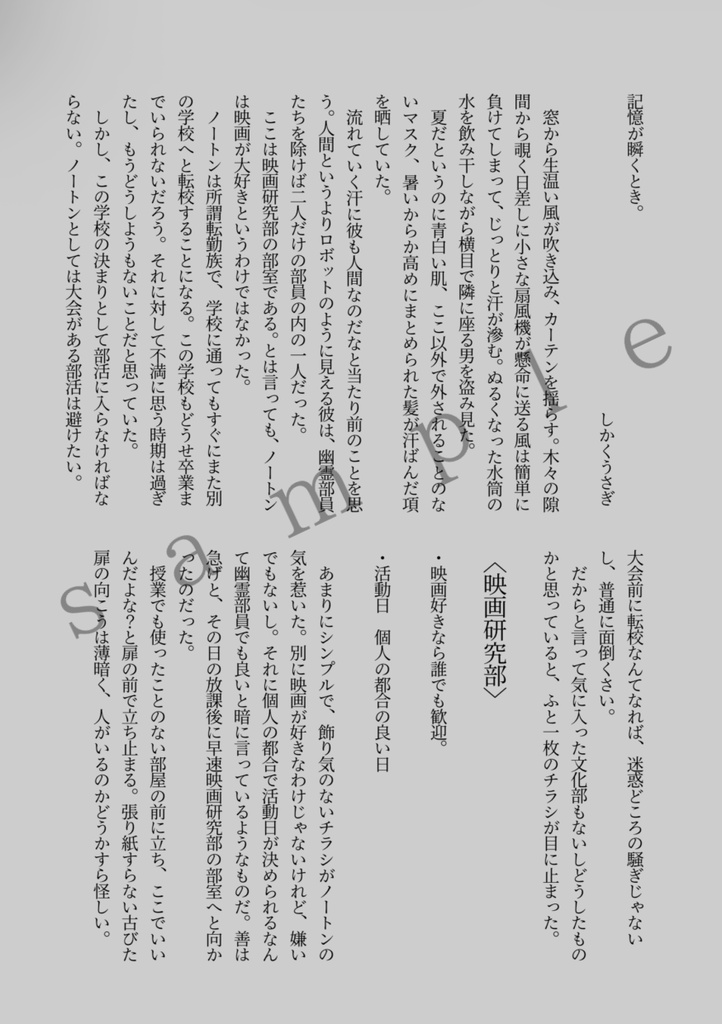 記憶が瞬くとき。
しかくうさぎ
窓から生温い風が吹き込み、カーテンを揺らす。木々の隙
間から覗く日差しに小さな扇風機が懸命に送る風は簡単に
負けてしまって、じっとりと汗が滲む。ぬるくなった水筒の
水を飲み干しながら横目で隣に座る男を盗み見た。
夏だというのに青白い肌、ここ以外で外されることのな
いマスク、暑いからか高めにまとめられた髪が汗ばんだ項
を晒していた。
流れていく汗に彼も人間なのだなと当たり前のことを思
う。人間というよりロボットのように見える彼は、幽霊部員
たちを除けば二人だけの部員の内の一人だった。
ここは映画研究部の部室である。とは言っても、ノートン
は映画が大好きというわけではなかった。
ノートンは所謂転勤族で、学校に通ってもすぐにまた別
の学校へと転校することになる。この学校もどうせ卒業ま
でいられないだろう。それに対して不満に思う時期は過ぎ
たし、もうどうしようもないことだと思っていた。
しかし、この学校の決まりとして部活に入らなければな
らない。ノートンとしては大会がある部活は避けたい。
大会前に転校なんてなれば、迷惑どころの騒ぎじゃない
し、普通に面倒くさい。
だからと言って気に入った文化部もないしどうしたもの
かと思っていると、ふと一枚のチラシが目に止まった。
〈映画研究部〉
・映画好きなら誰でも歓迎。
・活動日　個人の都合の良い日
あまりにシンプルで、飾り気のないチラシがノートンの
気を惹いた。別に映画が好きなわけじゃないけれど、嫌い
でもないし。それに個人の都合で活動日が決められるなん
て幽霊部員でも良いと暗に言っているようなものだ。善は
急げと、その日の放課後に早速映画研究部の部室へと向か
ったのだった。
授業でも使ったことのない部屋の前に立ち、ここでいい
んだよな？と扉の前で立ち止まる。張り紙すらない古びた
扉の向こうは薄暗く、人がいるのかどうかすら怪しい。
sample